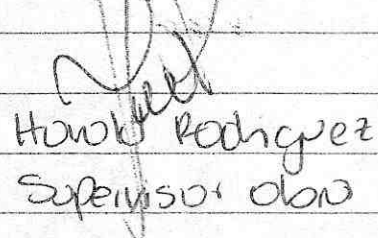 Harold Rodriguez
Supervisor obra